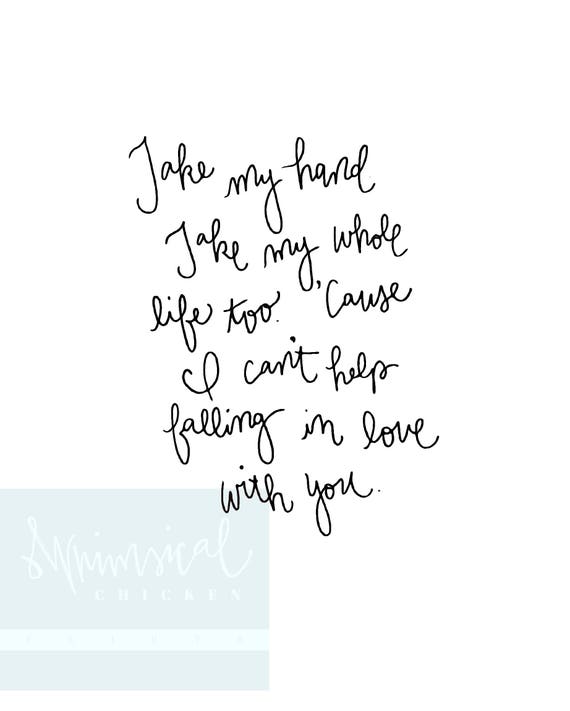 Take my hand
Take my whole
life too. 'Cause
I can't help
falling in love
with you.
Whimsical
CHICKEN
PRINTS